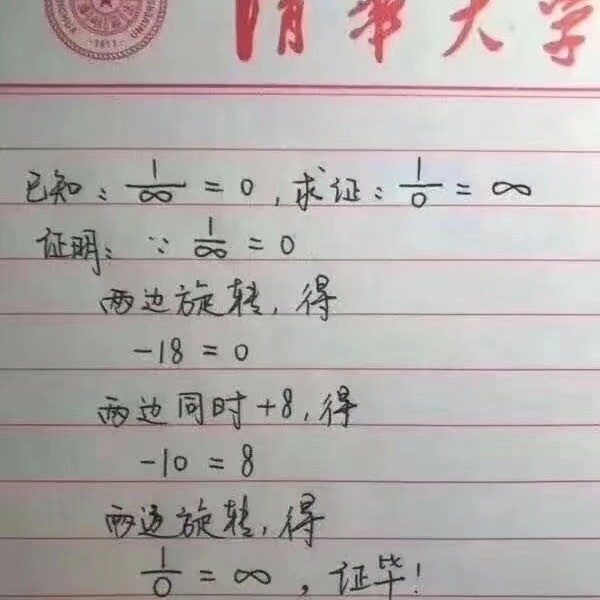 清华大学
UNIVERSI
-1911-
已知：1/∞ = 0，求证：1/0 = ∞
证明：∵ 1/∞ = 0
两边旋转，得
-18 = 0
两边同时+8，得
-10 = 8
两边旋转，得
1/0 = ∞，证毕！